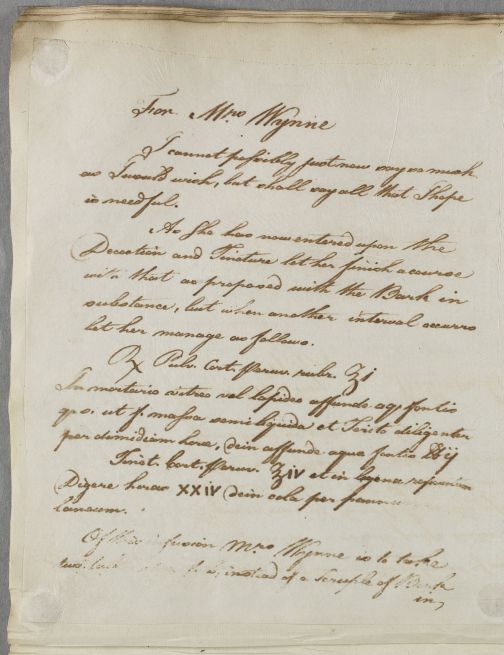 For Mrs Wynne
I cannot possibly just now say as much
as I would wish, but shall say all that I hope
is needful.
As She has now entered upon the
Decoction and Tincture let her finish a course
with that as proposed with the Bark in
substance, but when another interval occurs
let her manage as follows.
℞ Pulv. Cort. Peruv. rubr. ℥j
In mortario vitreo vel lapideo affundo aq. fontis
q. s. ut f. massa semiliquida et Terito diligenter
per dimidium horæ, dein affunde aquæ fontis ℔ij
Tinct. Cort. Peruv. ℥iv et in lagena
Digere horas XXIV dein cola per pannum
laneum.
Of this infusion Mrs Wynne is to take
instead of a Scruple of Bark
in